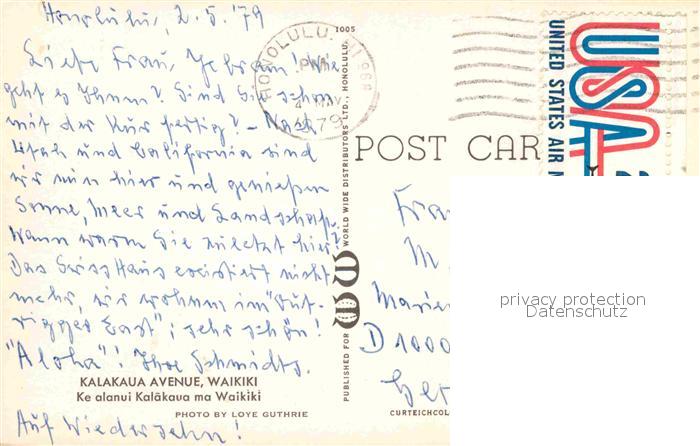 Honolulu, 2.5.'79
Liebe Frau Jebram! Wie
geht es Ihnen? Sind Sie schon
mit der Kur fertig? – Nach
Utah und California sind
wir nun hier und genießen
Sonne, Meer und Landschaft.
Wann waren Sie zuletzt hier?
Das Swiss Haus existiert nicht
mehr, wir wohnen im "Out-
rigger East"; sehr schön!
"Aloha"! Ihre Schmidts.
KALAKAUA AVENUE, WAIKIKI
Ke alanui Kalākaua ma Waikiki
PHOTO BY LOYE GUTHRIE
Auf Wiedersehn!
1005
HONOLULU, HI 968
PM
MAY
1979
PUBLISHED FOR WORLD WIDE DISTRIBUTORS LTD., HONOLULU
POST CAR
USA
UNITED STATES AIR M
Frau
M
Marien
D 1000
Ger
CURTEICHCOL
privacy protection
Datenschutz